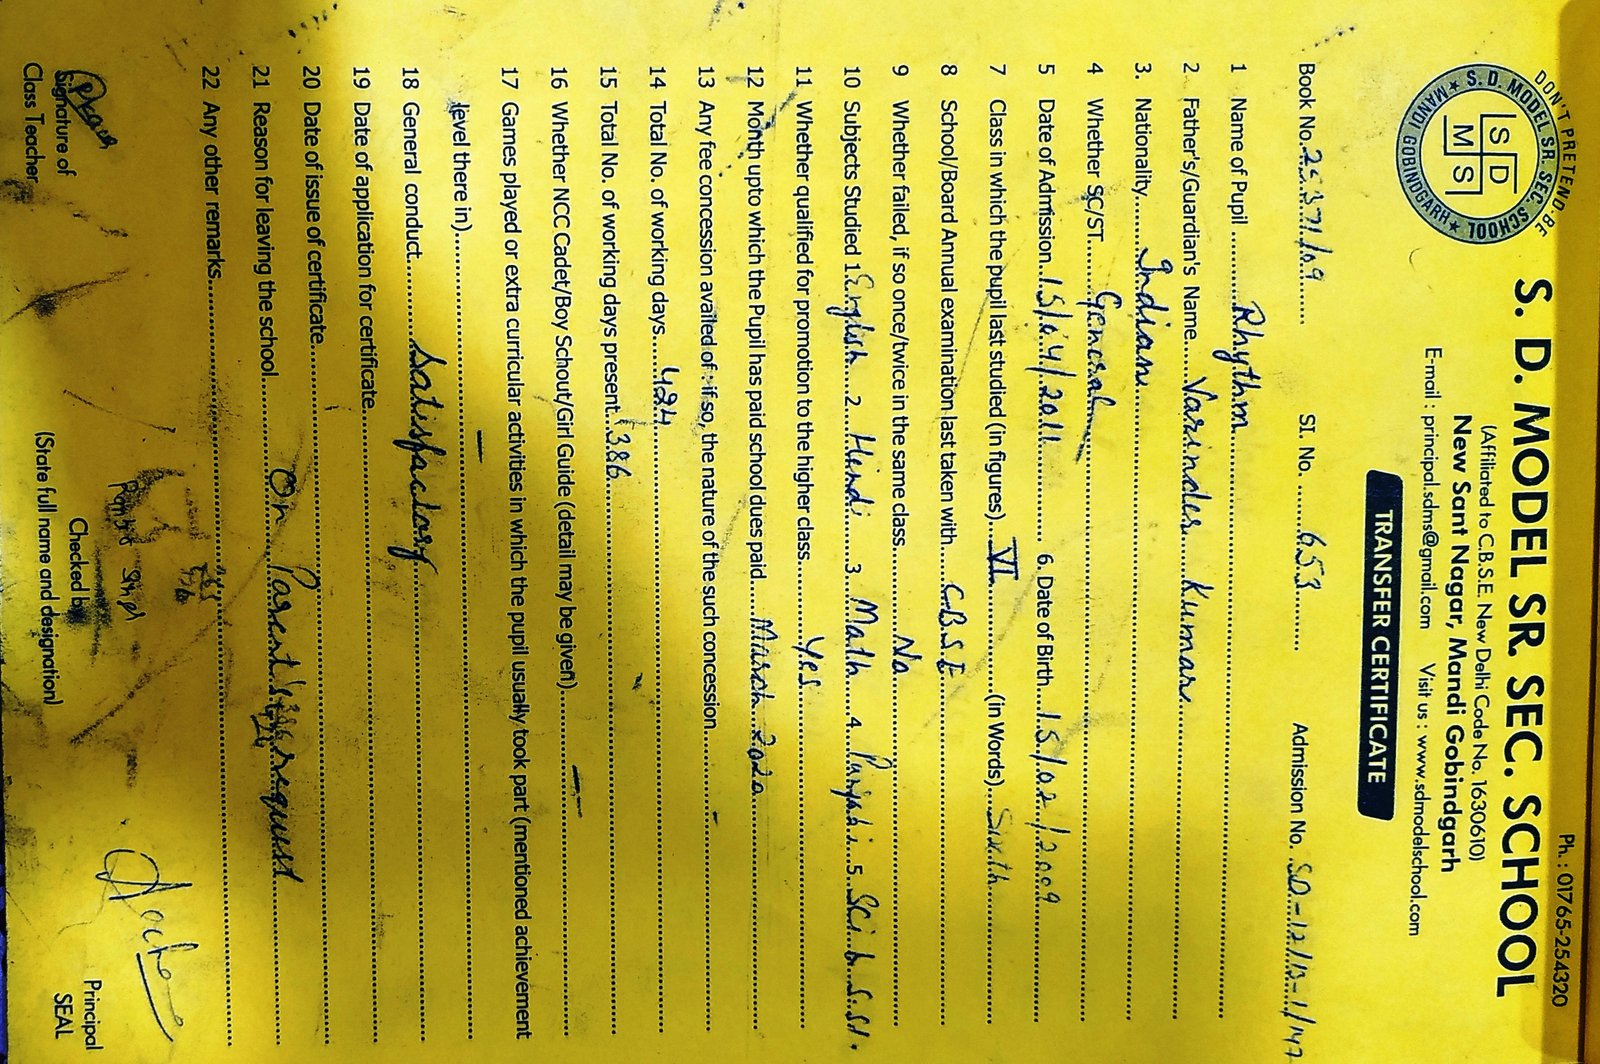 Ph. : 01765-254320
DON'T PRETEND, BE
S. D. MODEL SR. SEC. SCHOOL
★ MANDI GOBINDGARH ★
S D
M S
S. D. MODEL SR SEC. SCHOOL
(Affiliated to C.B.S.E. New Delhi Code No. 1630610)
New Sant Nagar, Mandi Gobindgarh
E-mail : principal.sdms@gmail.com Visit us : www.sdmodelschool.com
TRANSFER CERTIFICATE
Book No. 25371/09 Sl. No. 653 Admission No. SD-12/13-1/147
1 Name of Pupil Rhythm
2 Father's/Guardian's Name Varinder Kumar
3. Nationality Indian
4 Whether SC/ST General
5 Date of Admission 15/04/2011 6. Date of Birth 15/02/2009
7 Class in which the pupil last studied (in figures) VI (in Words) Sixth
8 School/Board Annual examination last taken with C.B.S.E
9 Whether failed, if so once/twice in the same class No
10 Subjects Studied 1. English 2. Hindi 3. Math 4. Punjabi 5. Sci 6. S.St.
11 Whether qualified for promotion to the higher class Yes
12 Month upto which the Pupil has paid school dues paid March 2020
13 Any fee concession availed of : if so, the nature of the such concession
14 Total No. of working days 424
15 Total No. of working days present. 386
16 Whether NCC Cadet/Boy Schout/Girl Guide (detail may be given)
17 Games played or extra curricular activities in which the pupil usually took part (mentioned achievement
level there in)
18 General conduct Satisfactory
19 Date of application for certificate
20 Date of issue of certificate
21 Reason for leaving the school On Parent's request
22 Any other remarks
Signature of Checked by Principal
Class Teacher (State full name and designation) SEAL